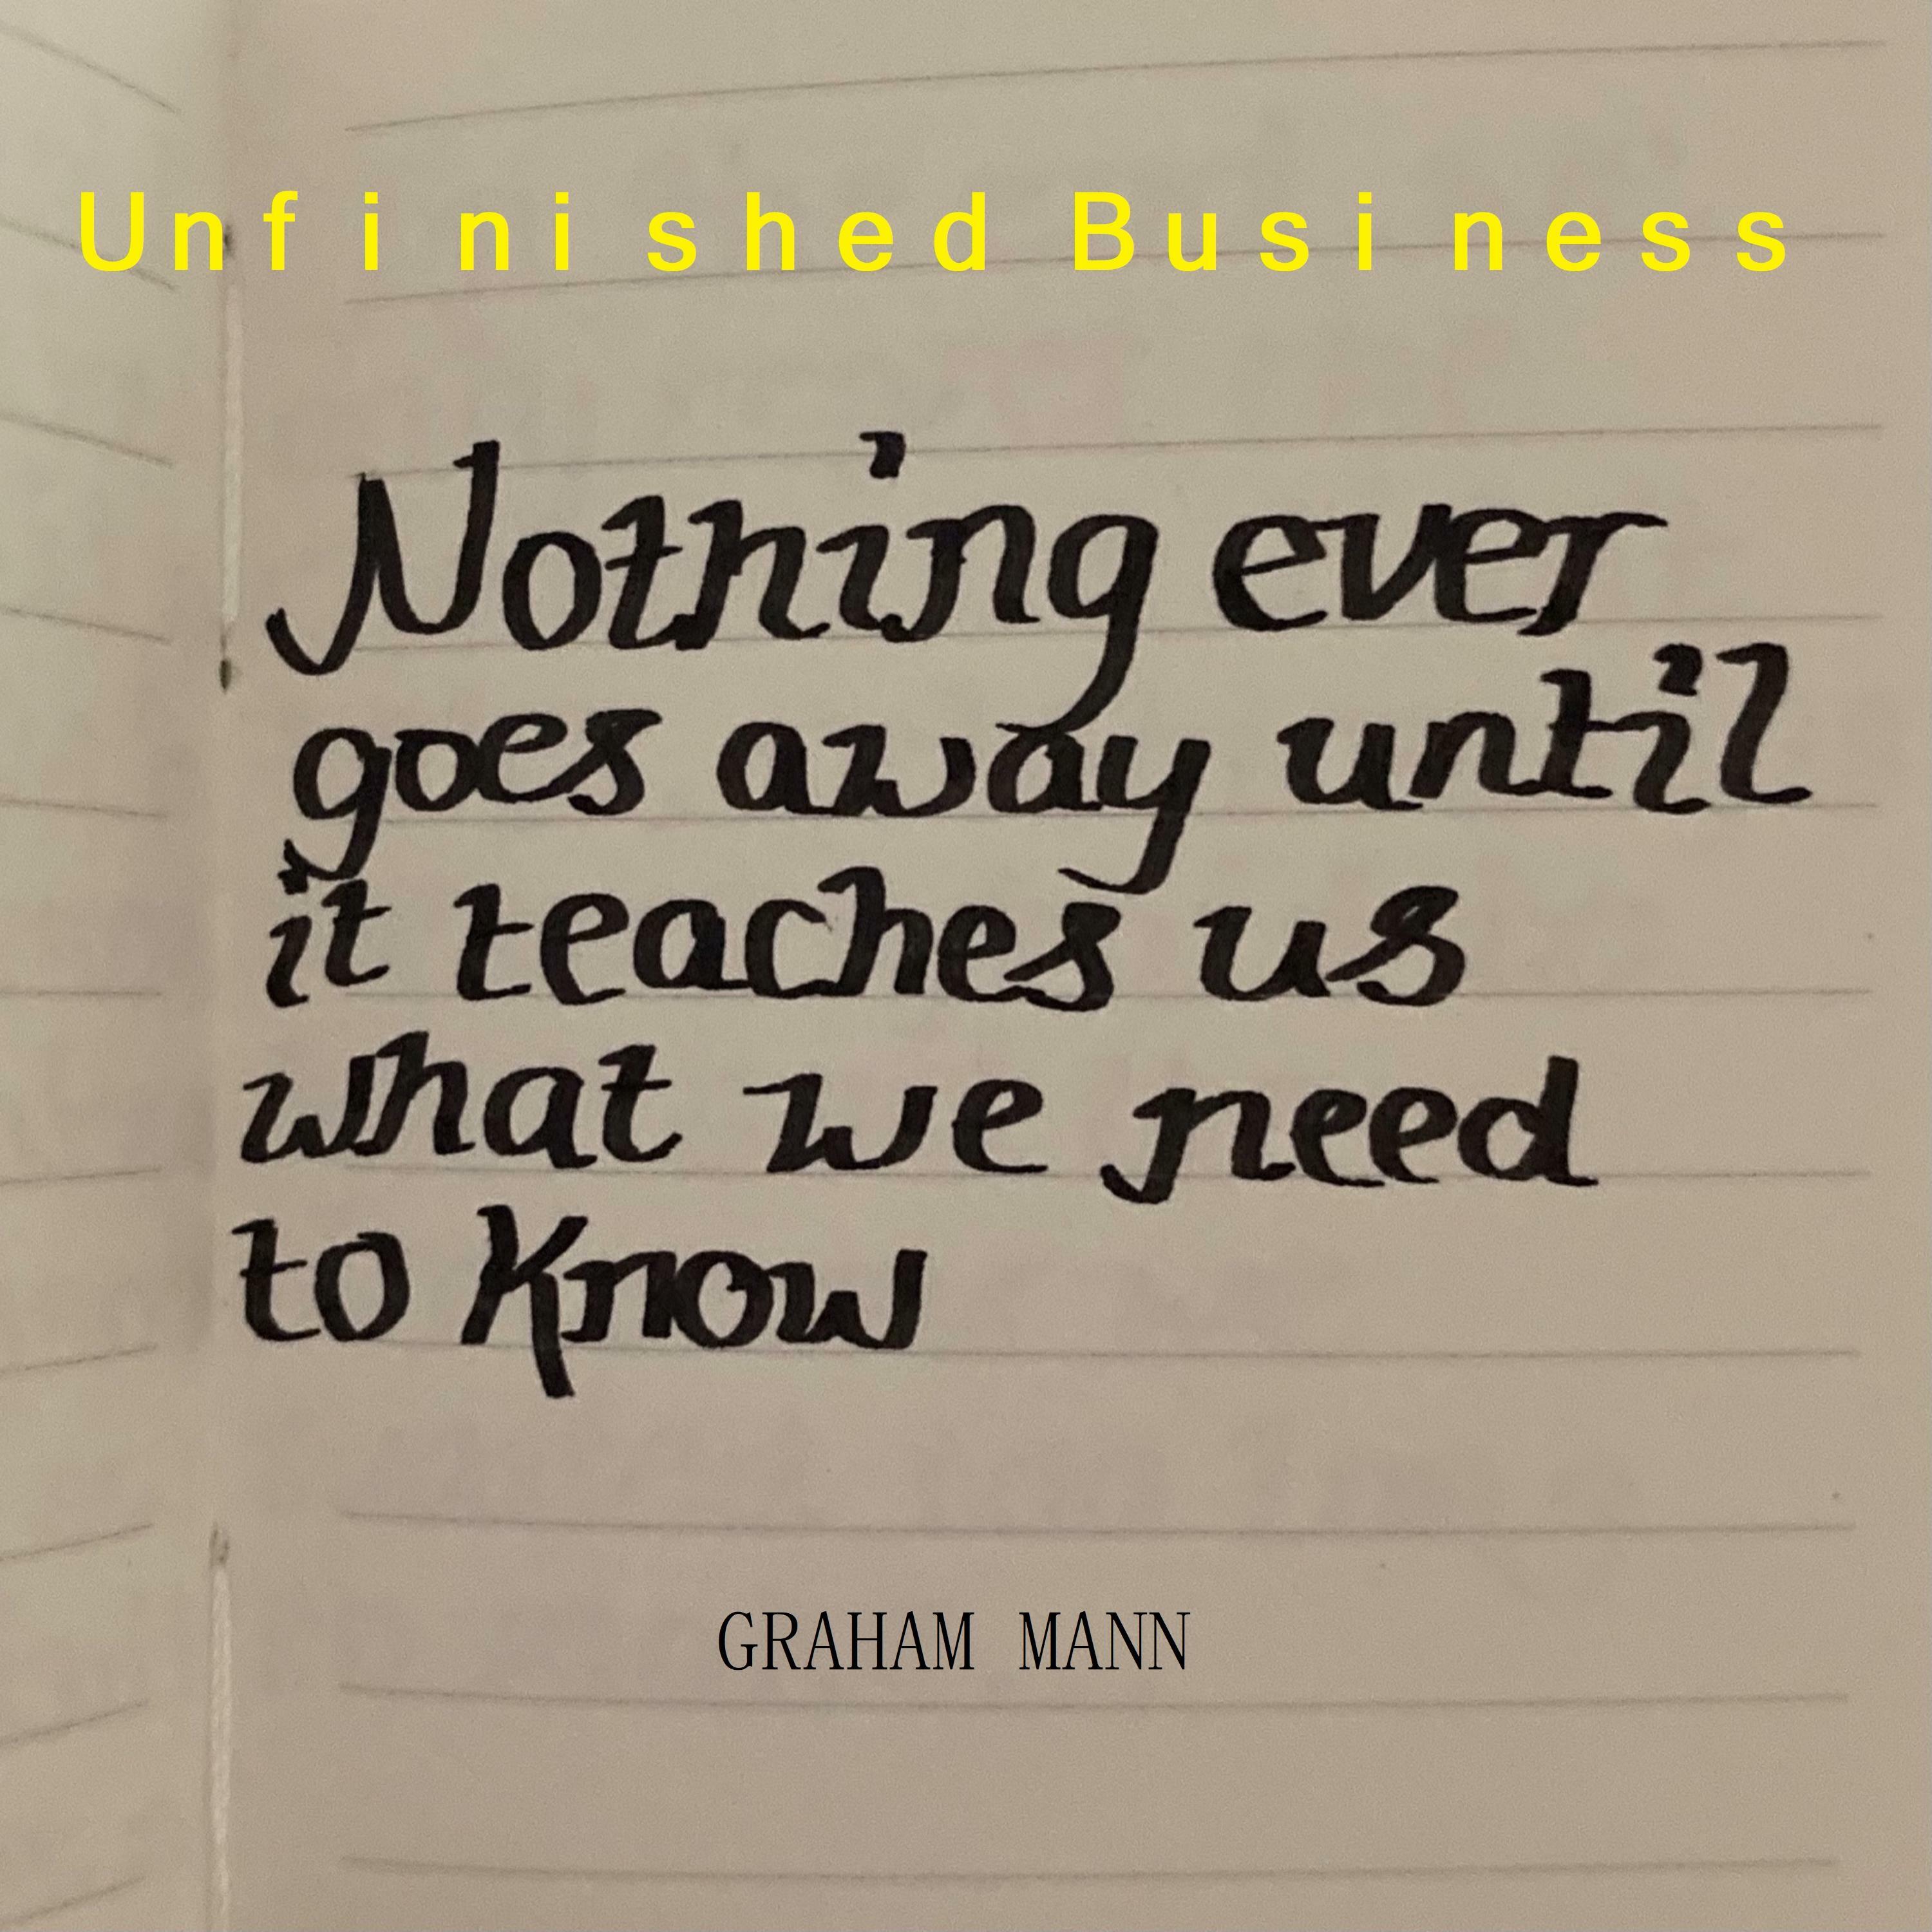 Unfinished Business
Nothing ever
goes away until
it teaches us
what we need
to know
GRAHAM MANN